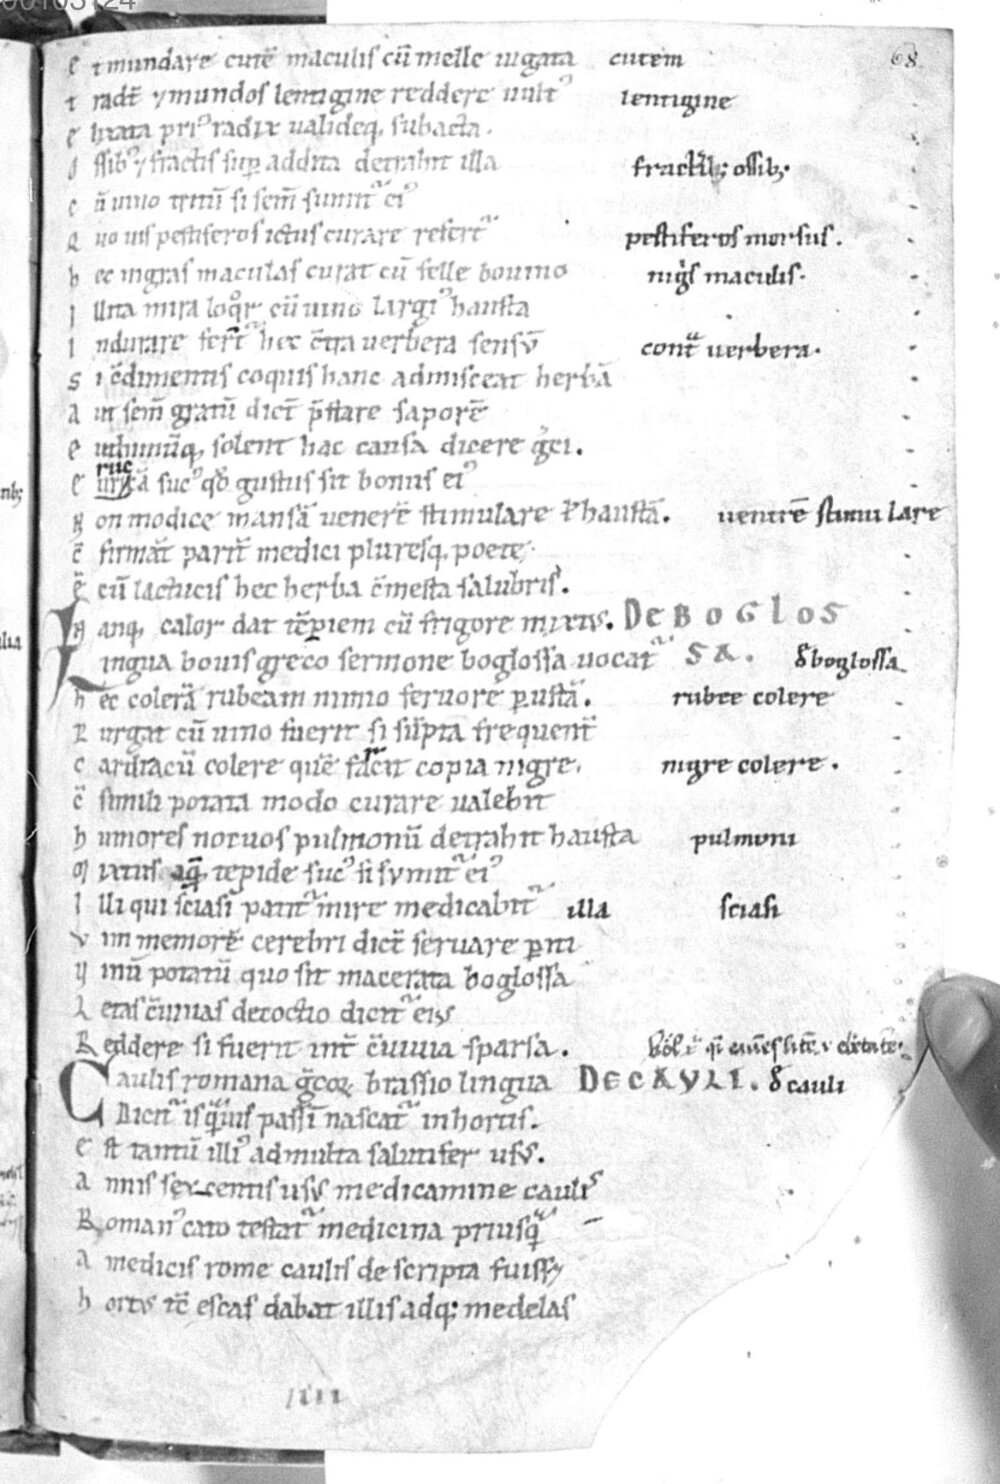 68
e t mundare cutē maculis cū melle iugata cutem
t radt̄ ⁊ mundos lentigine reddere uult᾽ lentigine
e lixata pri᾽ radix ualideq, subacta.
o ssib᾽ ⁊ fractis sup addita detrahit illa fractis; ossib;.
c ū uino tritū si sem̄ sumit᷑ ei᾽
q uo uis pestiferos ictus curare refert᷑ pestiferos morsus.
h ec nigras maculas curat cū felle bouino nigs maculis.
i llita mira loq̊r cū uino largi᾽ hausta
i ndurare fert᷑ hec c̄tra uerbera sensū cont᷑ uerbera.
s i c̄dimentis coquis hanc admisceat herbā
a ut sem̄ gratū dict̄ p̄stare saporē
e uzhumūq, solent hac causa dicere g̊ci.
ruc
e uricā suc᾽ qd̄ gustus sit bonus ei᾽
n on modice mansā uenerē stimulare ł haustā. uentrē stimulare
c̄ firmāt parit̄ medici pluresq, poete.
ē cū lactucis hec herba c̄mesta salubris.
n anq, calor dat tēpiem cū frigore mixtus. DE BOGLOS
Lingua bouis greco sermone boglossa uocat᷑ SA. δ boglossa
h ec colerā rubeam nimio feruore p̱ustā. rubee colere
p urgat cū uino fuerit si sūpta frequent̄
c ardiacū colere quē facit copia nigre. nigre colere.
c̄ simili potata modo curare ualebit
h umores nocuos pulmonū detrahit hausta pulmoni
m ixtus aq̄ tepide suc᾽ si sumit᷑ ei᾽
i lli qui sciasi patit᷑ mire medicabit᷑ illa sciasi
v im memorē cerebri dict̄ seruare p̱iti
v inū potatū quo sit macerata boglossa
l etas c̄uiuas decoctio dicit᷑ eius
R eddere si fuerit int̄ c̄uiuia sparsa.
Caulis romana g̊coꝝ brassio lingua DE CAVLI. δ cauli
Dicit᷑ is q̄uis passī nascat᷑ in hortis.
e st tantū illi᾽ ad multa salutifer usus.
a nnis sexcentis usus medicamine caulis
R oman᾽ cato testat᷑ medicina priusq᷑
a medicis rome caulis descripta fuisset
h ortus tc̄ escas dabat illis adq; medelas
IIII